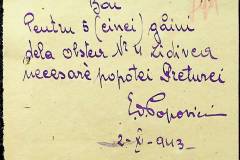 Bon
Pentru 5 (cinci) găini
dela obstea Nº 4 Lidivca
necesare popotei Preturei
Ed. Popovici
2-XI-943